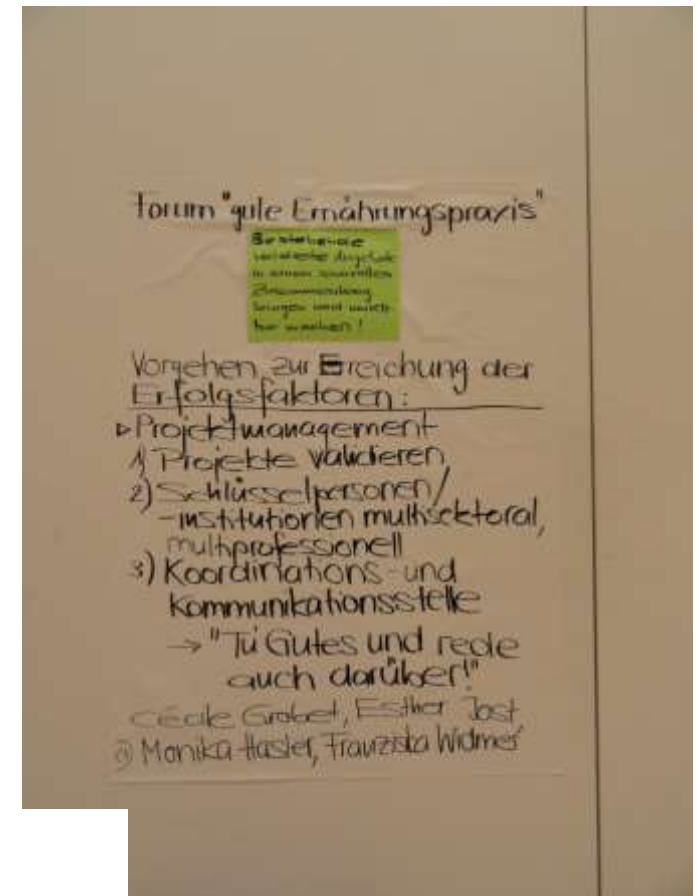 Forum "gute Ernährungspraxis"
Bestehende
validierte Angebote
in einen sinnvollen
Zusammenhang
bringen und
machen!
Vorgehen zur Ereichung der
Erfolgsfaktoren:
▷ Projektmanagement
1) Projekte validieren
2) Schlüsselpersonen/
-institutionen multisektoral,
multiprofessionell
3) Koordinations- und
Kommunikationsstelle
→ "Tu Gutes und rede
auch darüber!"
Cécile Grobet, Esther Jost,
Monika Hasler, Franziska Widmer